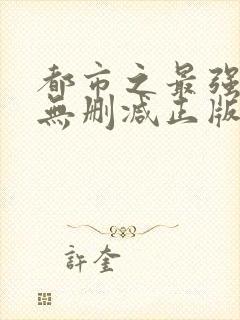 都市之最强
無刪减正版
許奎